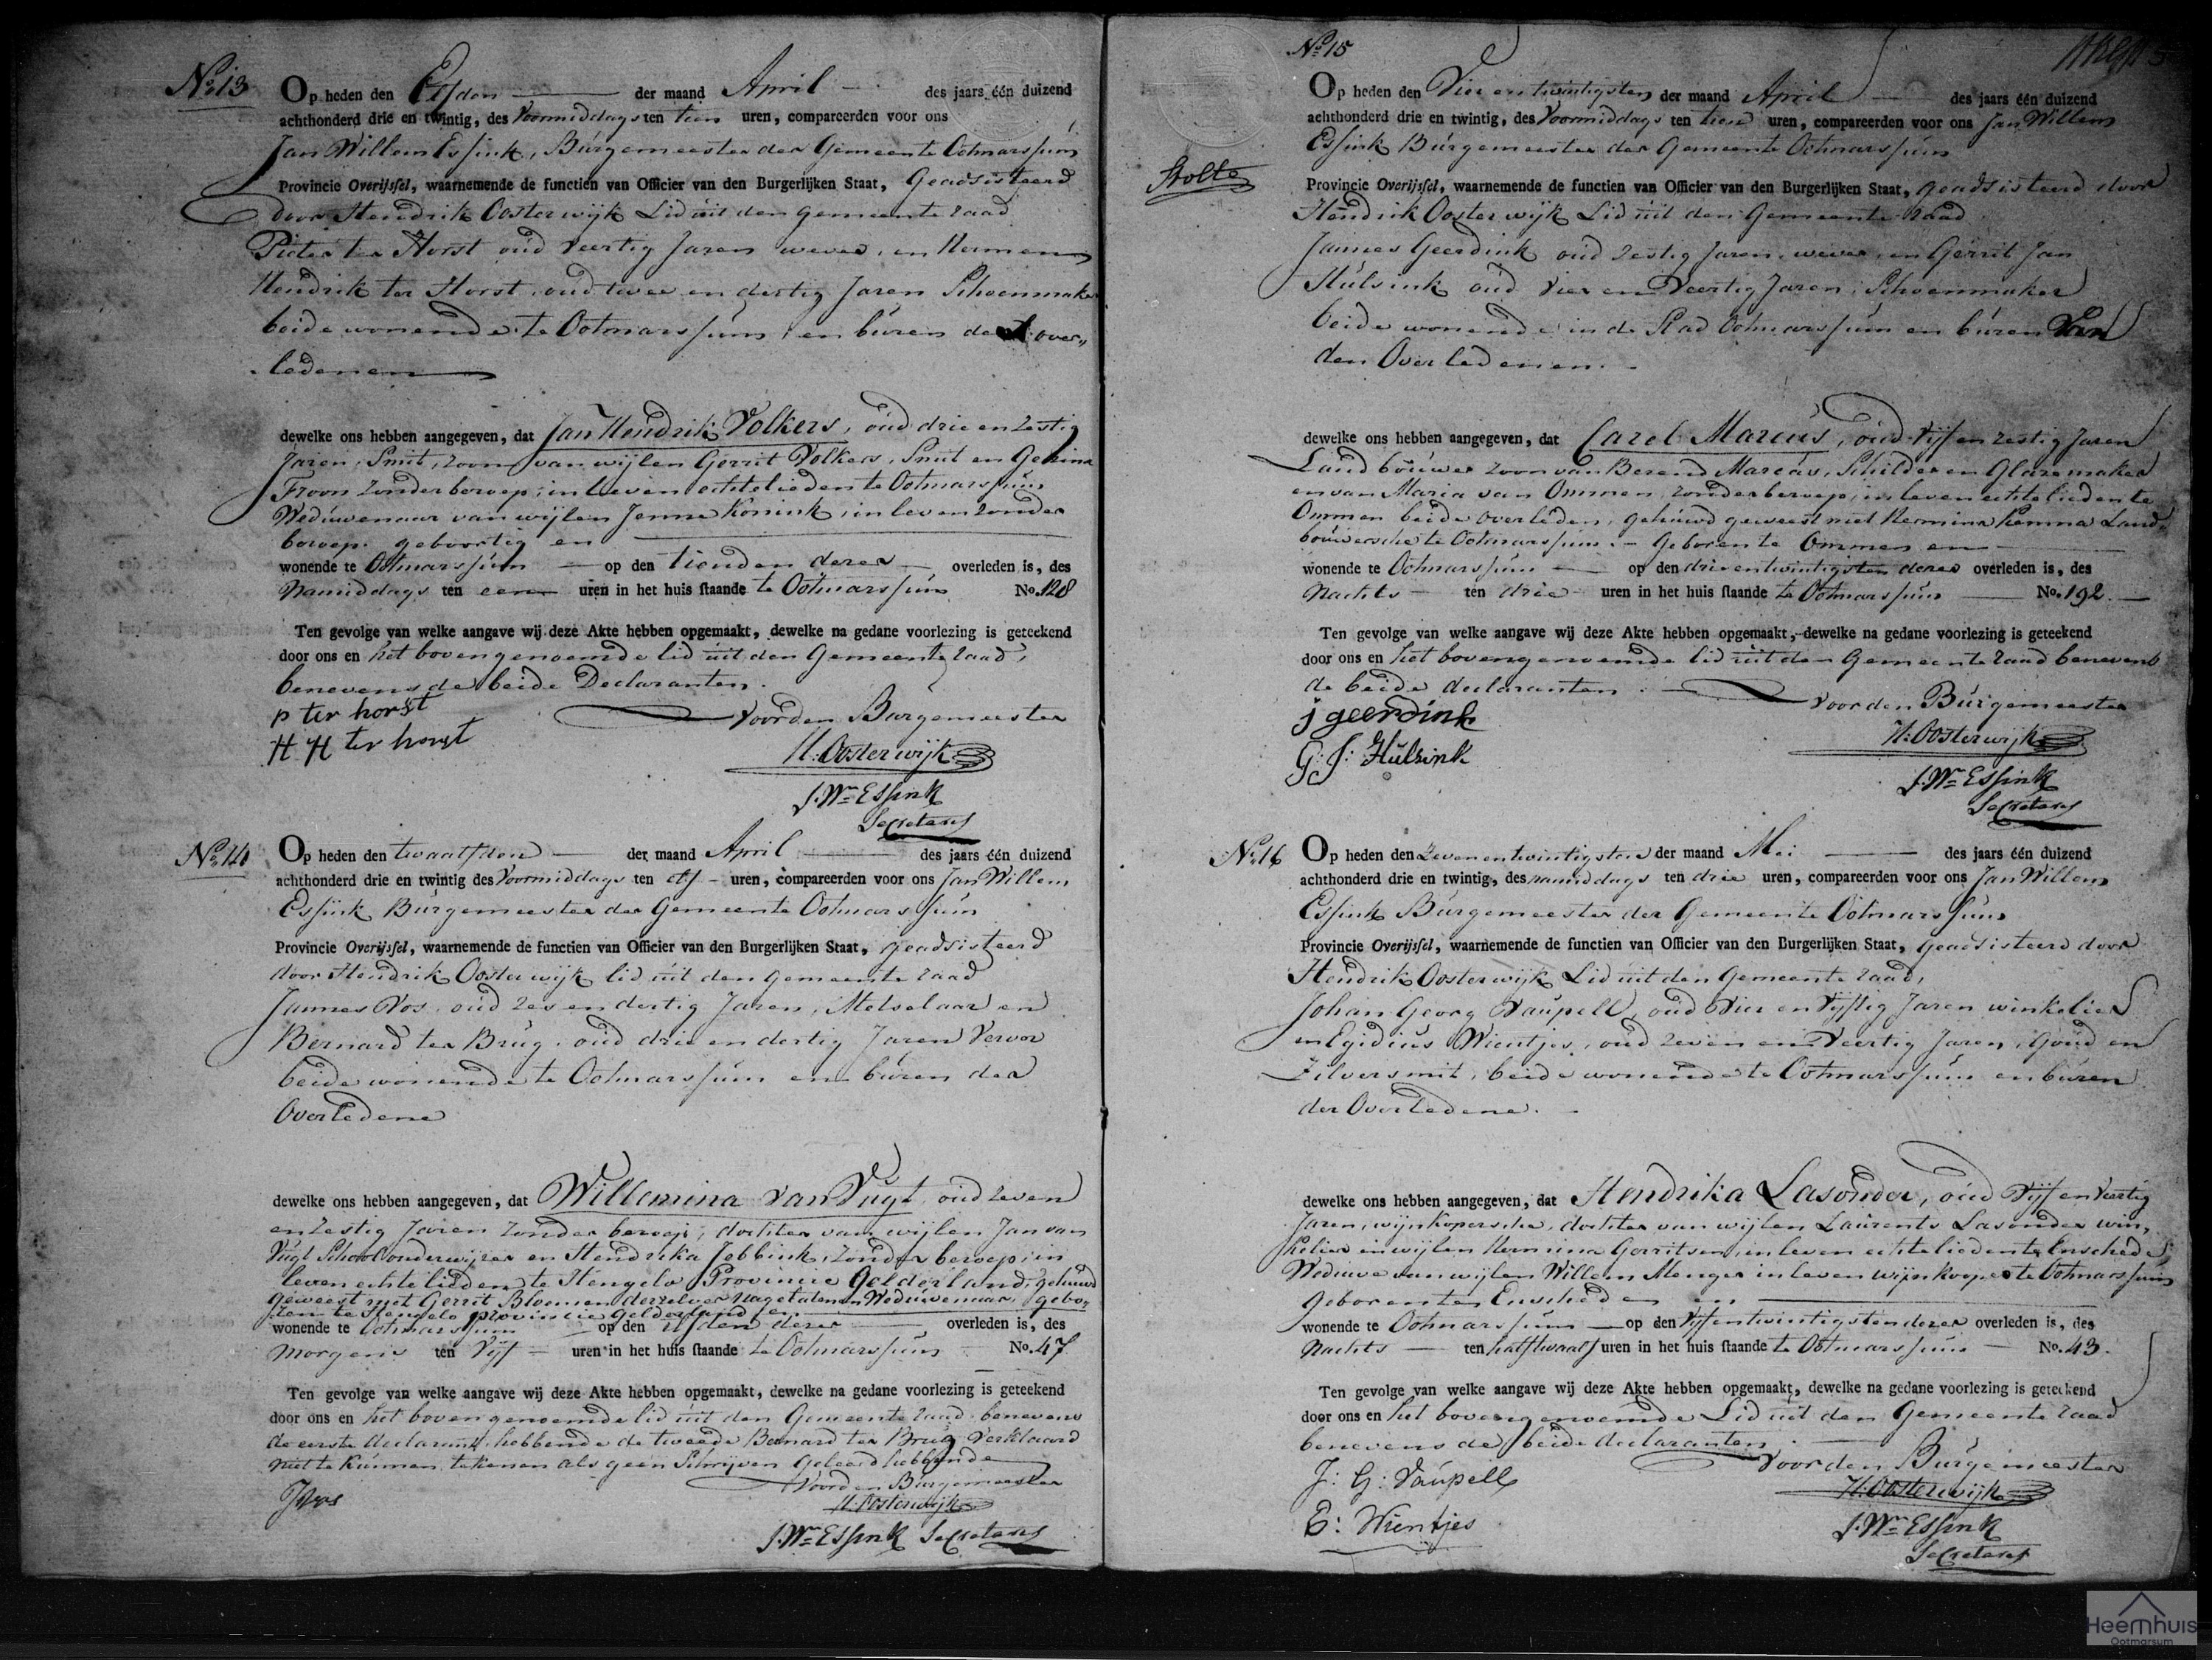 No. 13
Op heden den Elfden der maand April des jaars één duizend
achthonderd drie en twintig, des Voormiddags ten tien uren, compareerden voor ons
Jan Willem Essink, Burgemeester der Gemeente Ootmarssum
Provincie Overijssel, waarnemende de functien van Officier van den Burgerlijken Staat, Geadsisteerd
door Hendrik Oosterwijk Lid uit den gemeente raad
Pieter ter Horst oud veertig Jaren wever, en Hermen
Hendrik ter Horst, oud twee en dertig Jaren Schoenmaker
beide wonende te Ootmarssum, en buren des over„
ledenen
dewelke ons hebben aangegeven, dat Jan Hendrik Volkers, oud drie en Zestig
Jaren, Smit, zoon van wijlen Gerrit Volkers, Smit en
Froon zonder beroep, in leven echtelieden te Ootmarssum
Weduwenaar van wijlen Jenne Konink, in leven zonder
beroep. geboortig en
wonende te Ootmarssum op den tienden dezer overleden is, des
Namiddags ten een uren in het huis staande te Ootmarssum No. 128
Ten gevolge van welke aangave wij deze Akte hebben opgemaakt, dewelke na gedane voorlezing is geteekend
door ons en het bovengenoemde lid uit den Gemeente raad,
benevens de beide Declaranten.
p ter horst
Voor den Burgemeester
H H ter horst
H: Oosterwijk
J. Wm Essink
Secretaris
No. 14
Op heden den twaalfden der maand April des jaars één duizend
achthonderd drie en twintig des Voormiddags ten elf uren, compareerden voor ons Jan Willem
Essink Burgemeester der Gemeente Ootmarssum
Provincie Overijssel, waarnemende de functien van Officier van den Burgerlijken Staat, geadsisteerd
door Hendrik Oosterwijk lid uit den gemeente raad
Jannes Vos, oud zes en dertig Jaren, Metselaar en
Bernard ter Brug, oud drie en dertig Jaren Verver
beide wonende te Ootmarssum en buren der
Overledene
dewelke ons hebben aangegeven, dat Willemina van Vugt oud zeven
en Zestig Jaren zonder beroep, dochter van wijlen Jan van
Vugt Schoolonderwijzer en Hendrika Jebbink, zonder beroep, in
leven echtelidden te Hengelo Provincie Gelderland, gehuwd
geweest met Gerrit Bloemen derzelver nagelaten Weduwenaar, gebo„
ren te Hengelo provincie Gelderland en
wonende te Ootmarssum op den elfden dezer overleden is, des
morgens ten Vijf uren in het huis staande te Ootmarssum No. 47
Ten gevolge van welke aangave wij deze Akte hebben opgemaakt, dewelke na gedane voorlezing is geteekend
door ons en het bovengenoemde lid uit den Gemeente raad benevens
de eerste declarant, hebbende de tweede Bernard ter Brug verklaard
niet te kunnen tekenen als geen Schrijven geleerd hebbende
Voor den Burgemeester
JVos
H: Oosterwijk
J. Wm Essink Secretaris
No. 15
Op heden den Vier en twintigsten der maand April des jaars één duizend
achthonderd drie en twintig, des Voormiddags ten tien uren, compareerden voor ons Jan Willem
Essink Burgemeester der Gemeente Ootmarssum
Stolte
Provincie Overijssel, waarnemende de functien van Officier van den Burgerlijken Staat, geadsisteerd door
Hendrik Oosterwijk Lid uit den Gemeente raad
Jannes Geerdink oud Zestig Jaren, wever, en Gerrit Jan
Hulsink oud Vier en Veertig Jaren, Schoenmaker
beide wonende in de Stad Ootmarssum en buren Van
den Overledenen.
dewelke ons hebben aangegeven, dat Carel Marcus, oud Vijf en zestig Jaren
Landbouwer zoon van Berend Marcus, Schilder en Glazemaker
en van Maria van Ommen, zonder beroep, in leven echtelieden te
Ommen beide overleden, gehuwd geweest met Hermina Kemna Land„
bouwersche te Ootmarssum. Geboren te Ommen en
wonende te Ootmarssum op den drie en twintigsten dezer overleden is, des
Nachts ten drie uren in het huis staande te Ootmarssum No. 192.
Ten gevolge van welke aangave wij deze Akte hebben opgemaakt, dewelke na gedane voorlezing is geteekend
door ons en het bovengenoemde lid uit den Gemeente raad benevens
de beide declaranten.
Voor den Burgemeester
j geerdink
H: Oosterwijk
G: J: Hulsink
J. Wm Essink
Secretaris
No. 16
Op heden den Zeven en twintigsten der maand Mei des jaars één duizend
achthonderd drie en twintig, des namiddags ten drie uren, compareerden voor ons Jan Willem
Essink Burgemeester der Gemeente Ootmarssum
Provincie Overijssel, waarnemende de functien van Officier van den Burgerlijken Staat, geadsisteerd door
Hendrik Oosterwijk Lid uit den Gemeente raad,
Johan Georg Vaupell, oud Vier en Vijftig Jaren winkelier
en Egidius Wientjes, oud zeven en Veertig Jaren, Goud en
Zilversmit, beide wonende te Ootmarssum en buren
der Overledene.
dewelke ons hebben aangegeven, dat Hendrika Lasonder, oud Vijf en Veertig
Jaren, wijnkopersche, dochter van wijlen Laurents Lasonder win„
kelier en wijlen Hermina Gerritsen, in leven echtelieden te Enschede
Weduwe van wijlen Willem Menger in leven wijnkooper te Ootmarssum
geboren te Enschede en
wonende te Ootmarssum op den Vijf en twintigsten dezer overleden is, des
Nachts ten half twaalf uren in het huis staande te Ootmarssum No. 43.
Ten gevolge van welke aangave wij deze Akte hebben opgemaakt, dewelke na gedane voorlezing is geteekend
door ons en het bovengenoemde Lid uit den Gemeente raad
benevens de beide declaranten.
Voor den Burgemeester
J: G: Vaupell
H: Oosterwijk
E: Wientjes
J. Wm Essink
Secretaris
Heemhuis
Ootmarsum